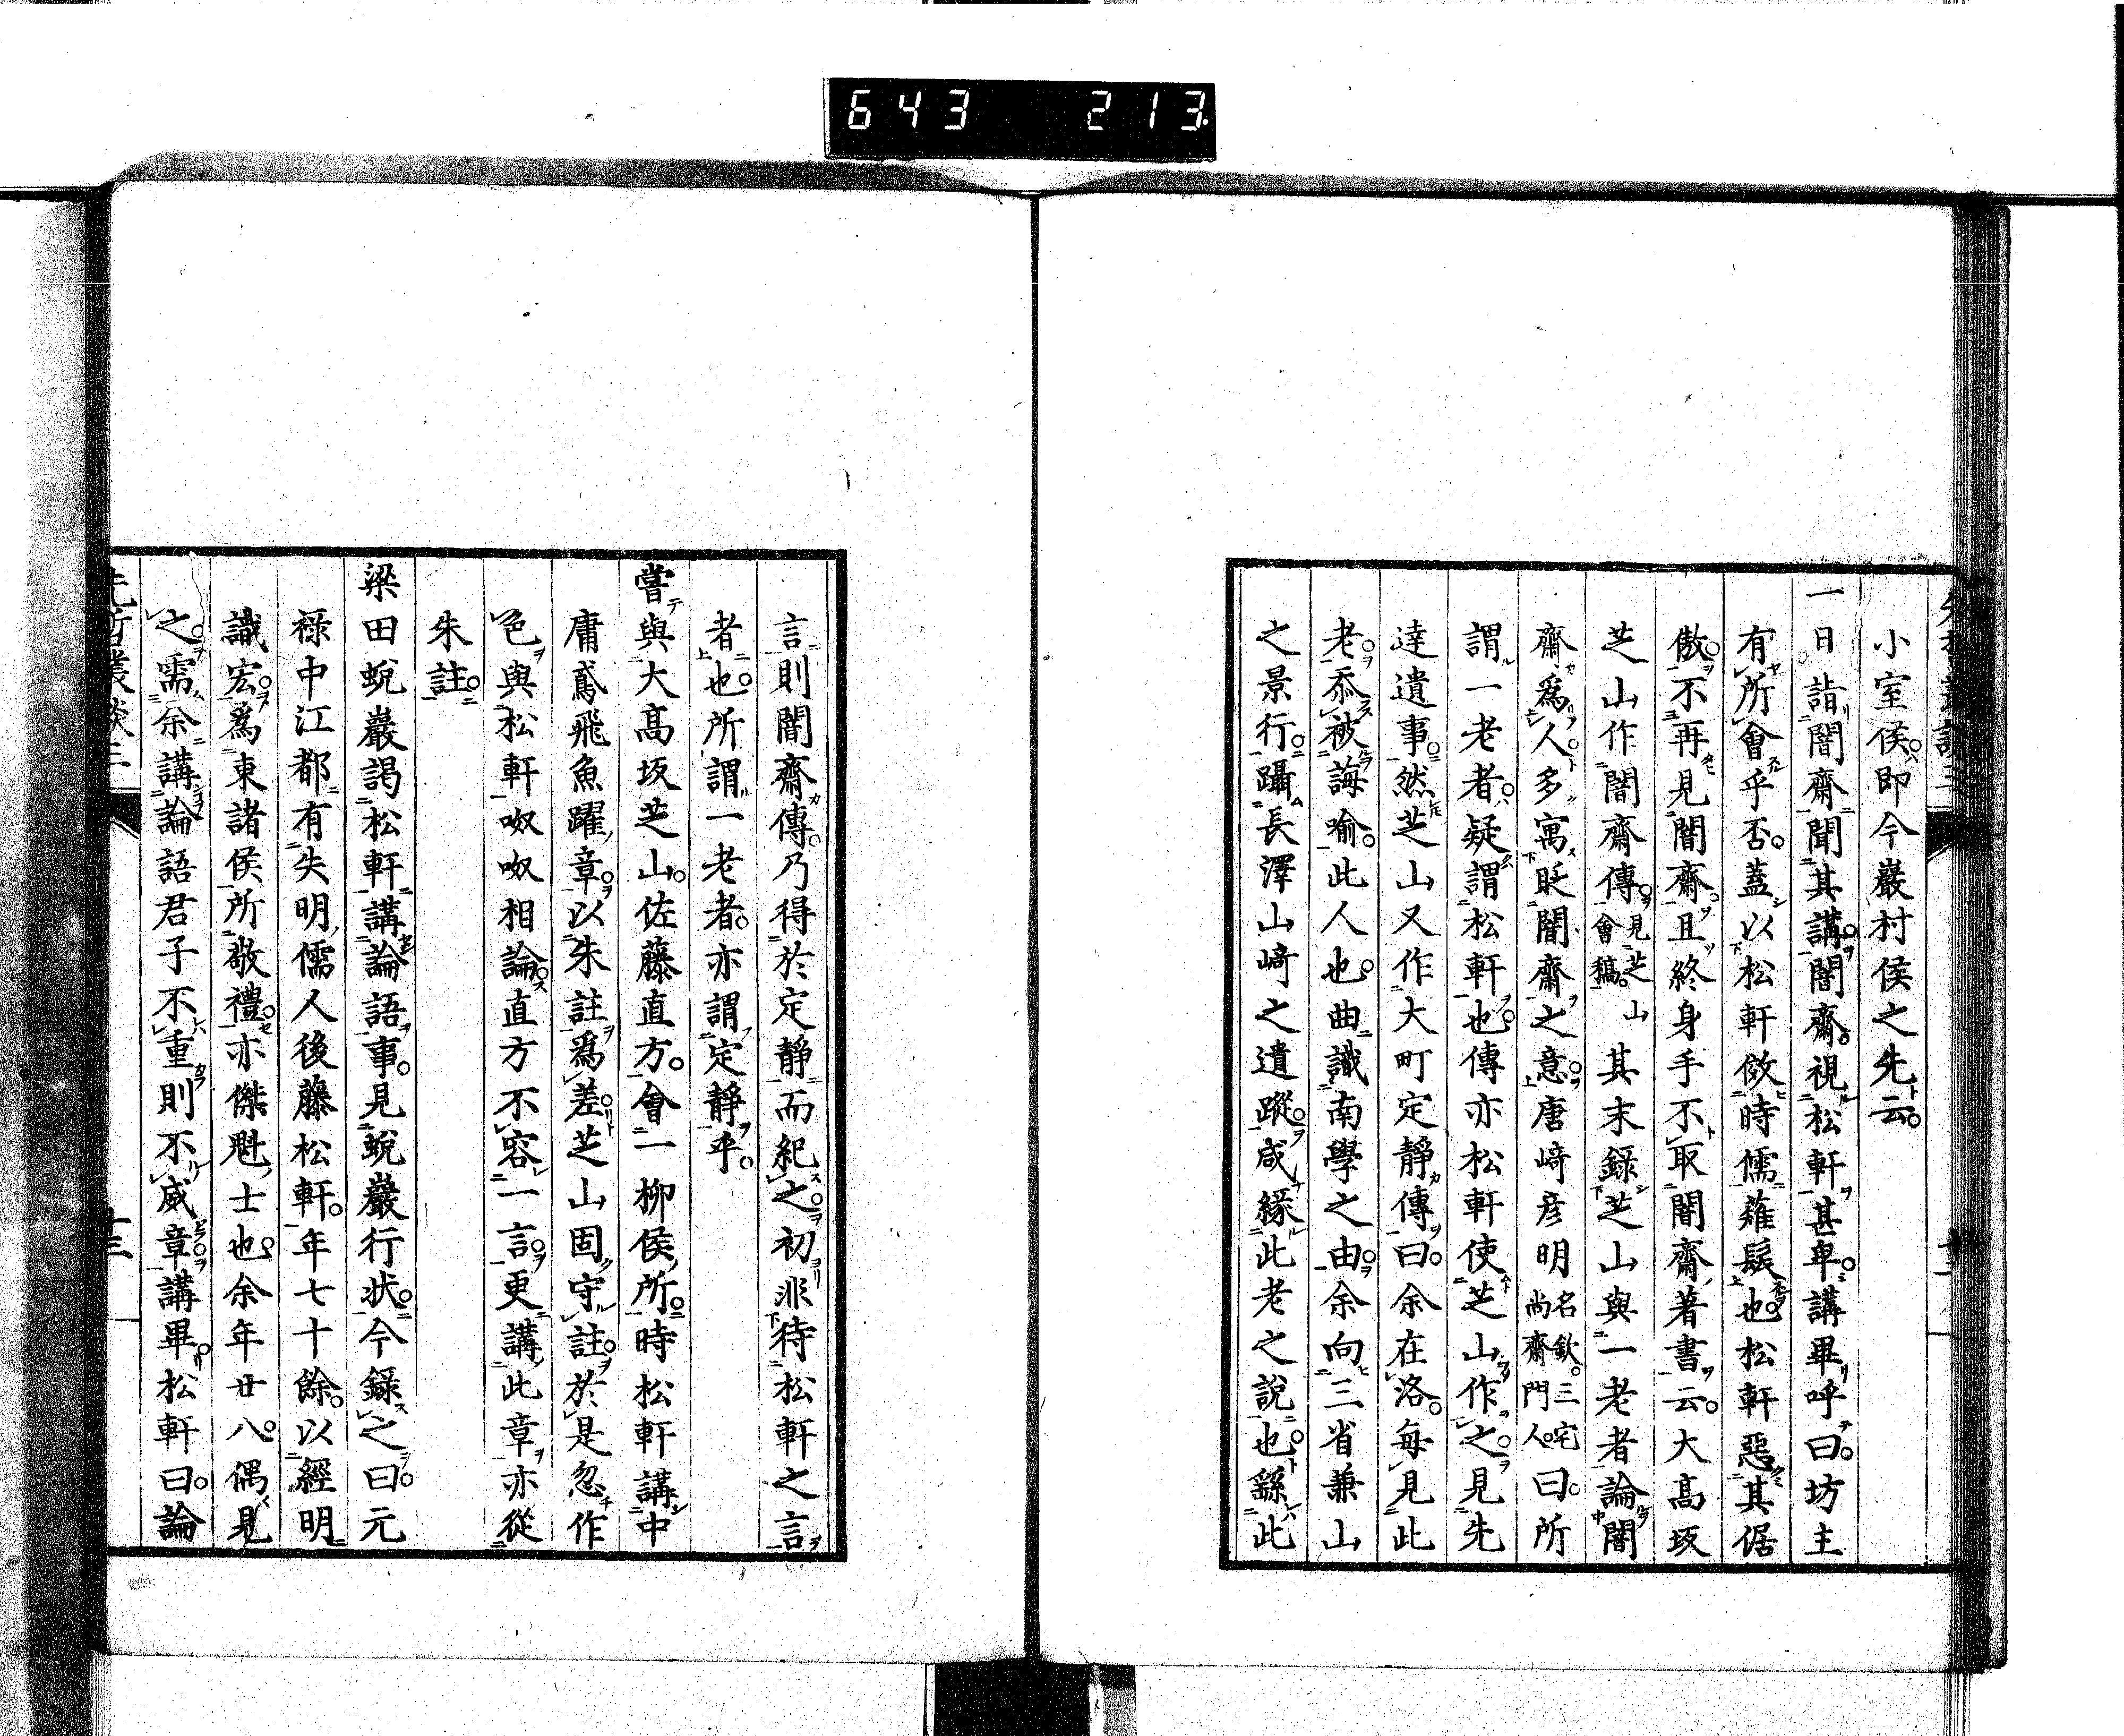 643 213
小室侯即今巖村侯之先云
一日詣闇齋聞其講闇齋視松軒甚卑講畢呼曰坊主
有所會乎否蓋以松軒倣時儒薙髮也松軒惡其倨
傲不再見闇齋且終身手不取闇齋著書云大高坂
芝山作闇齋傳見芝山會稿其末錄芝山與一老者論闇
齋爲人多寓貶闇齋之意唐崎彦明名欽三宅尚齋門人曰所
謂一老者疑謂松軒也傳亦松軒使芝山作之見先
達遺事然芝山又作大町定靜傳曰余在洛每見此
老忝被誨喻此人也曲識南學之由余向三省兼山
之景行躡長澤山崎之遺蹤咸緣此老之說也繇此
言則闇齋傳乃得於定靜而紀之初非待松軒之言
者也所謂一老者亦謂定靜乎
嘗與大高坂芝山佐藤直方會一柳侯所時松軒講中
庸鳶飛魚躍章以朱註爲差芝山固守註於是忽作
色與松軒呶呶相論直方不容一言更講此章亦從
朱註
梁田蛻巖謁松軒講論語事見蛻巖行狀今錄之曰元
祿中江都有失明儒人後藤松軒年七十餘以經明
識宏爲東諸侯所敬禮亦傑魁士也余年廿八偶見
之需余講論語君子不重則不威章講畢松軒曰論
先哲叢談三 十三